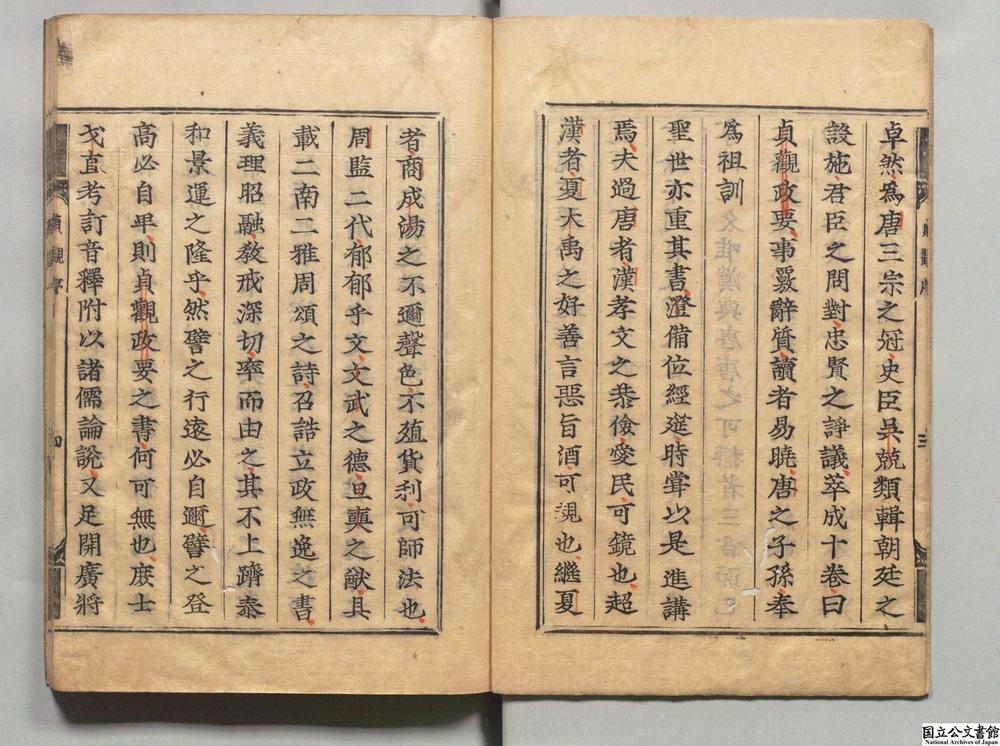 卓然爲唐三宗之冠史臣吳兢類輯朝廷之
設施君臣之問對忠賢之諍議萃成十卷曰
貞觀政要事覈辭質讀者易曉唐之子孫奉
爲祖訓
聖世亦重其書澄備位經筵時嘗以是進講
焉夫過唐者漢孝文之恭儉愛民可鏡也超
漢者夏大禹之好善言惡旨酒可規也繼夏
三
者商成湯之不邇聲色不殖貨利可師法也
周監二代郁郁乎文文武之德旦奭之猷具
載二南二雅周頌之詩召誥立政無逸之書
義理昭融敎戒深切率而由之其不上躋泰
和景運之隆乎然譬之行遠必自邇譬之登
高必自卑則貞觀政要之書何可無也庻士
戈直考訂音釋附以諸儒論說又足開廣將
貞觀序
四
国立公文書館
National Archives of Japan